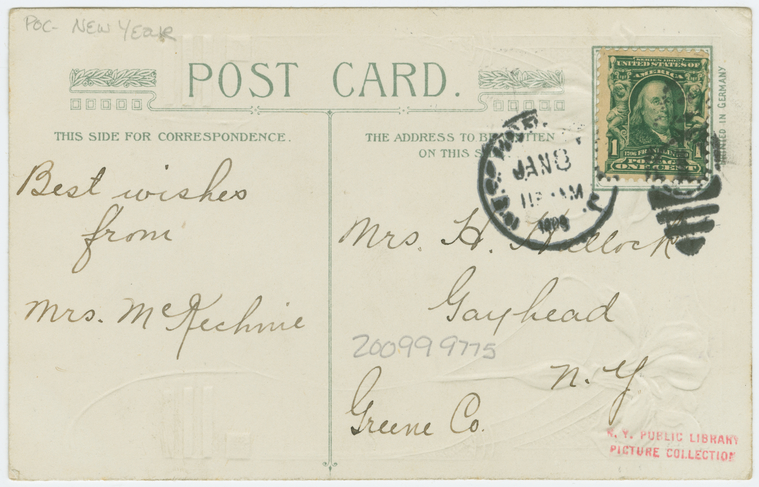 POC- NEW YEAR
POST CARD.
THIS SIDE FOR CORRESPONDENCE.
THE ADDRESS TO BE WRITTEN
ON THIS
SERIES 1902
UNITED STATES OF
AMERICA
1 1
POSTAGE
ONE CENT
IN GERMANY
JAN 8
AM
N.J.
Best wishes
from
Mrs. McKechnie
Mrs. H. Hallock
Gayhead
N.Y.
Greene Co.
200999775
N. Y. PUBLIC LIBRARY
PICTURE COLLECTION